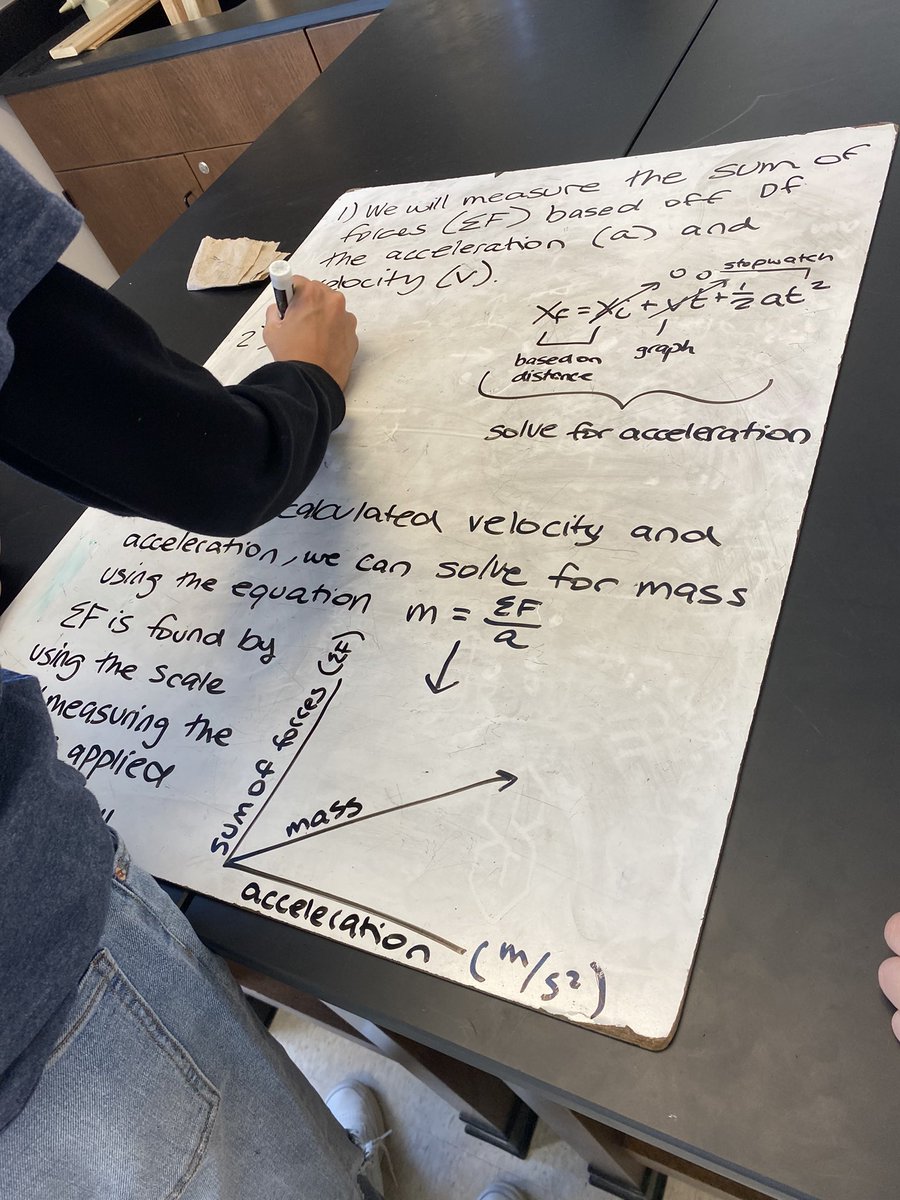 1) We will measure the sum of
forces (ΣF) based off of
the acceleration (a) and
velocity (v).
0 0 stopwatch
xf = xi + vt + 1/2 at²
based on
distance
graph
solve for acceleration
2)
calculated velocity and
acceleration, we can solve for mass
using the equation m = ΣF/a
ΣF is found by
using the scale
measuring the
applied
sum of forces (ΣF)
mass
acceleration (m/s²)